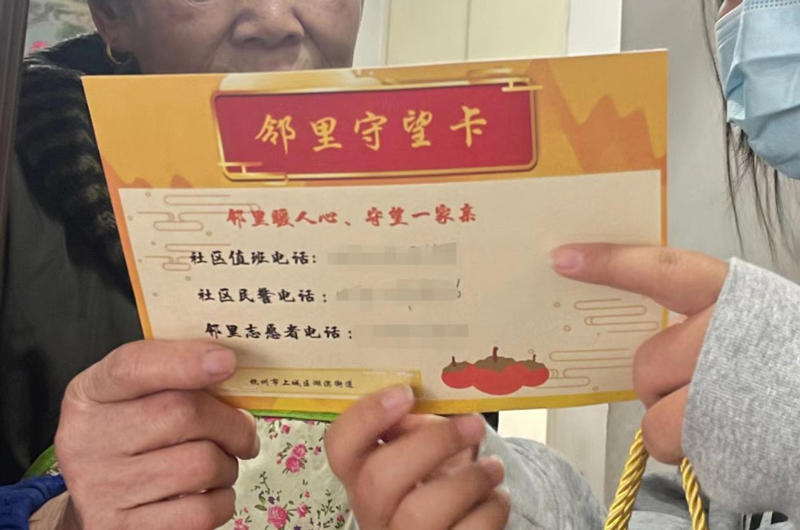 邻里守望卡
邻里暖人心、守望一家亲
社区值班电话：
社区民警电话：
邻里志愿者电话：
杭州市上城区湖滨街道